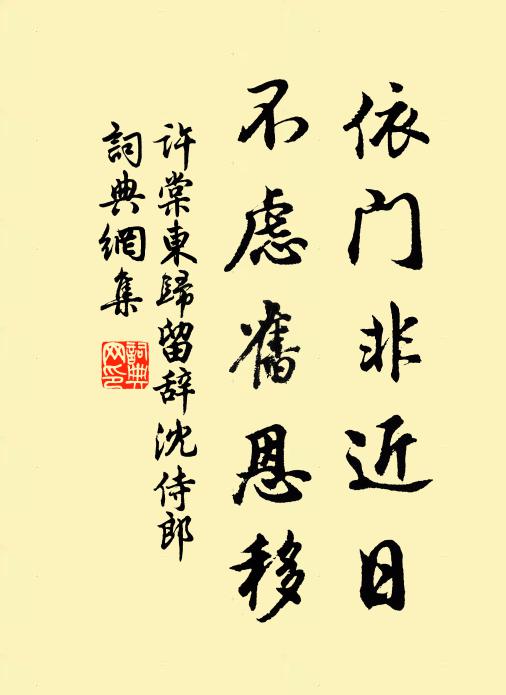 依门非近日
不慮舊恩移
许棠東歸留辞沈侍郎
詞典網集
詞典网印